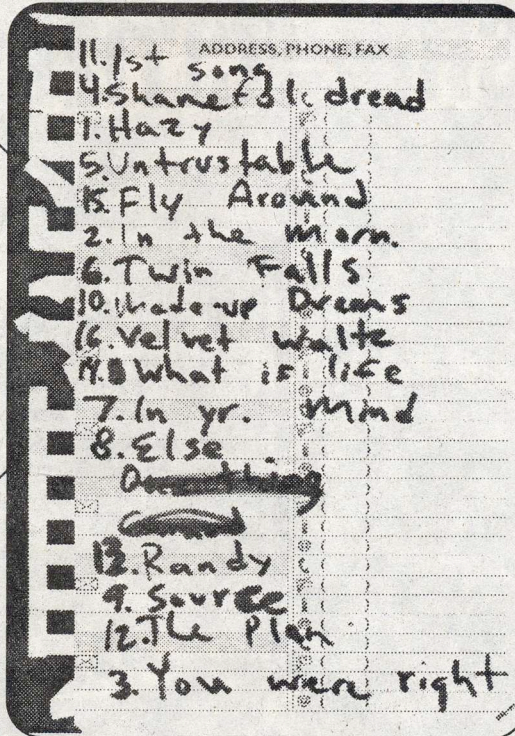 ADDRESS, PHONE, FAX
11. 1st song
4. Shameful dread
1. Hazy
5. Untrustable
15. Fly Around
2. In the Morn.
6. Twin Falls
10. Made-up Dreams
16. Velvet Waltz
14. What is life
7. In yr. Mind
8. Else
13. Randy
9. Source
12. The Plan
3. You were right